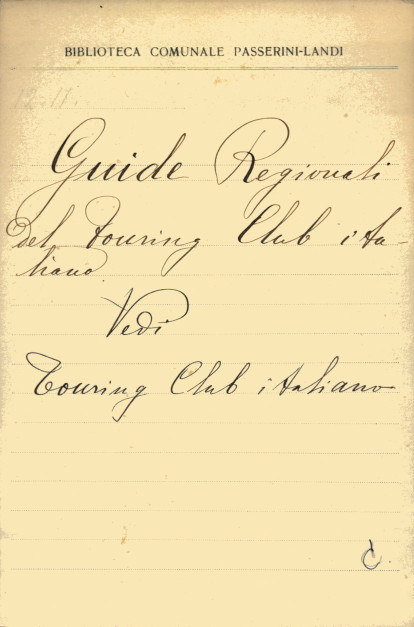 BIBLIOTECA COMUNALE PASSERINI-LANDI
Guide Regionali
del Touring Club ita-
liano
Vedi
Touring Club italiano
C